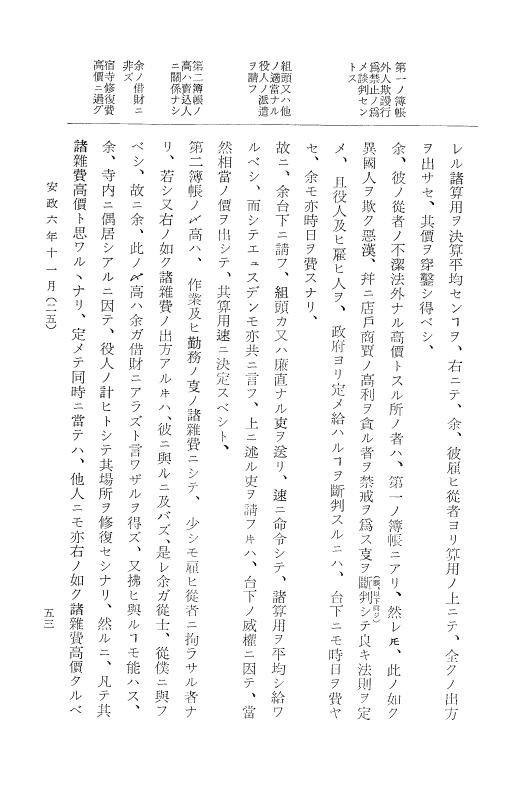 第一ノ簿帳
外人欺謾行
爲禁止ノ爲
メ談判セン
トス
組頭又ハ他
ノ適當ナル
役人ノ派遣
ヲ請フ
第二簿帳ノ
高ハ賣込人
ニ關係ナシ
余ノ借財ニ
非ズ
宿寺修復費
高價ニ過グ
レル諸算用ヲ決算平均センヿヲ、右ニテ、余、彼雇ヒ從者ヨリ算用ノ上ニテ、全クノ出方
ヲ出サセ、其價ヲ穿鑿シ得ベシ、
余、彼ノ從者ノ不潔法外ナル高價トスル所ノ者ハ、第一ノ簿帳ニアリ、然レ𪜈、此ノ如ク
異國人ヲ欺ク惡漢、幷ニ店戶商賈ノ高利ヲ貪ル者ヲ禁戒ヲ爲ス叓ヲ斷判シテ良キ法則ヲ定
メ、且役人及ヒ雇ヒ人ヲ、政府ヨリ定メ給ハルヿヲ斷判スルニハ、台下ニモ時日ヲ費ヤ
セ、余モ亦時日ヲ費スナリ、
故ニ、余台下ニ請フ、組頭カ又ハ廉直ナル吏ヲ送リ、速ニ命令シテ、諸算用ヲ平均シ給ワ
ルベシ、而シテエュスデンモ亦共ニ言フ、上ニ述ル吏ヲ請フ𪜈ハ、台下ノ威權ニ因テ、當
然相當ノ價ヲ出シテ、其算用速ニ決定スベシト、
第二簿帳ノ〆高ハ、作業及ヒ勤務ノ叓ノ諸雜費ニシテ、少シモ雇ヒ從者ニ拘ラサル者ナ
リ、若シ又右ノ如ク諸雜費ノ出方アル𪜈ハ、彼ニ與ルニ及バズ、是レ余ガ從士、從僕ニ與フ
ベシ、故ニ余、此ノ〆高ハ余ガ借財ニアラズト言ワザルヲ得ズ、又拂ヒ與ルヿモ能ハス、
余、寺內ニ偶居シアルニ因テ、役人ノ計ヒトシテ其場所ヲ修復セシナリ、然ルニ、凡テ其
諸雜費高價ト思ワルヽナリ、定メテ同時ニ當テハ、他人ニモ亦右ノ如ク諸雜費高價タルベ
安政六年十一月(二五)
五三